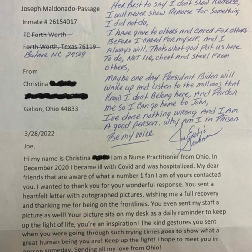 Joseph Maldonado-Passage
Inmate # 26154017
FC Forth Worth
Forth Worth, Texas 76119
Butner NC 27509
From
Christina
Galion, Ohio 44833
3/28/2022
best to say I don't show Remorse,
I will never show Remorse for Something
I did not do,
I have give to others and cared for others
Before I cared for myself. and I
Always will. Thats what god put us here
To do, Not lie, cheat and steal from
others,
Maybe one day President Biden will
wake up and listen to the millions that
know I dont belong here, and Pardon
me So I can go home to
I've done nothing wrong and I am
A good person, why am I in Prison
Be my voice
Joe,
Hi my name is Christina I am a Nurse Practitioner from Ohio. In
December 2020 I became ill with Covid and was hospitalized. My dear
friends that are aware of what a number 1 fan I am of yours contacted
you. I wanted to thank you for your wonderful response. You sent a
heartfelt letter with autographed pictures, wishing me a full recovery
and thanking me for being on the frontlines. You even sent my staff a
picture as well! Your picture sits on my desk as a daily reminder to keep
up the light of life, you're an inspiration! The kind gestures you sent
when you were going through such trying times goes to show what a
great human being you are! Keep up the light! I hope to meet you in
person someday. Sending all my love from Ohio!